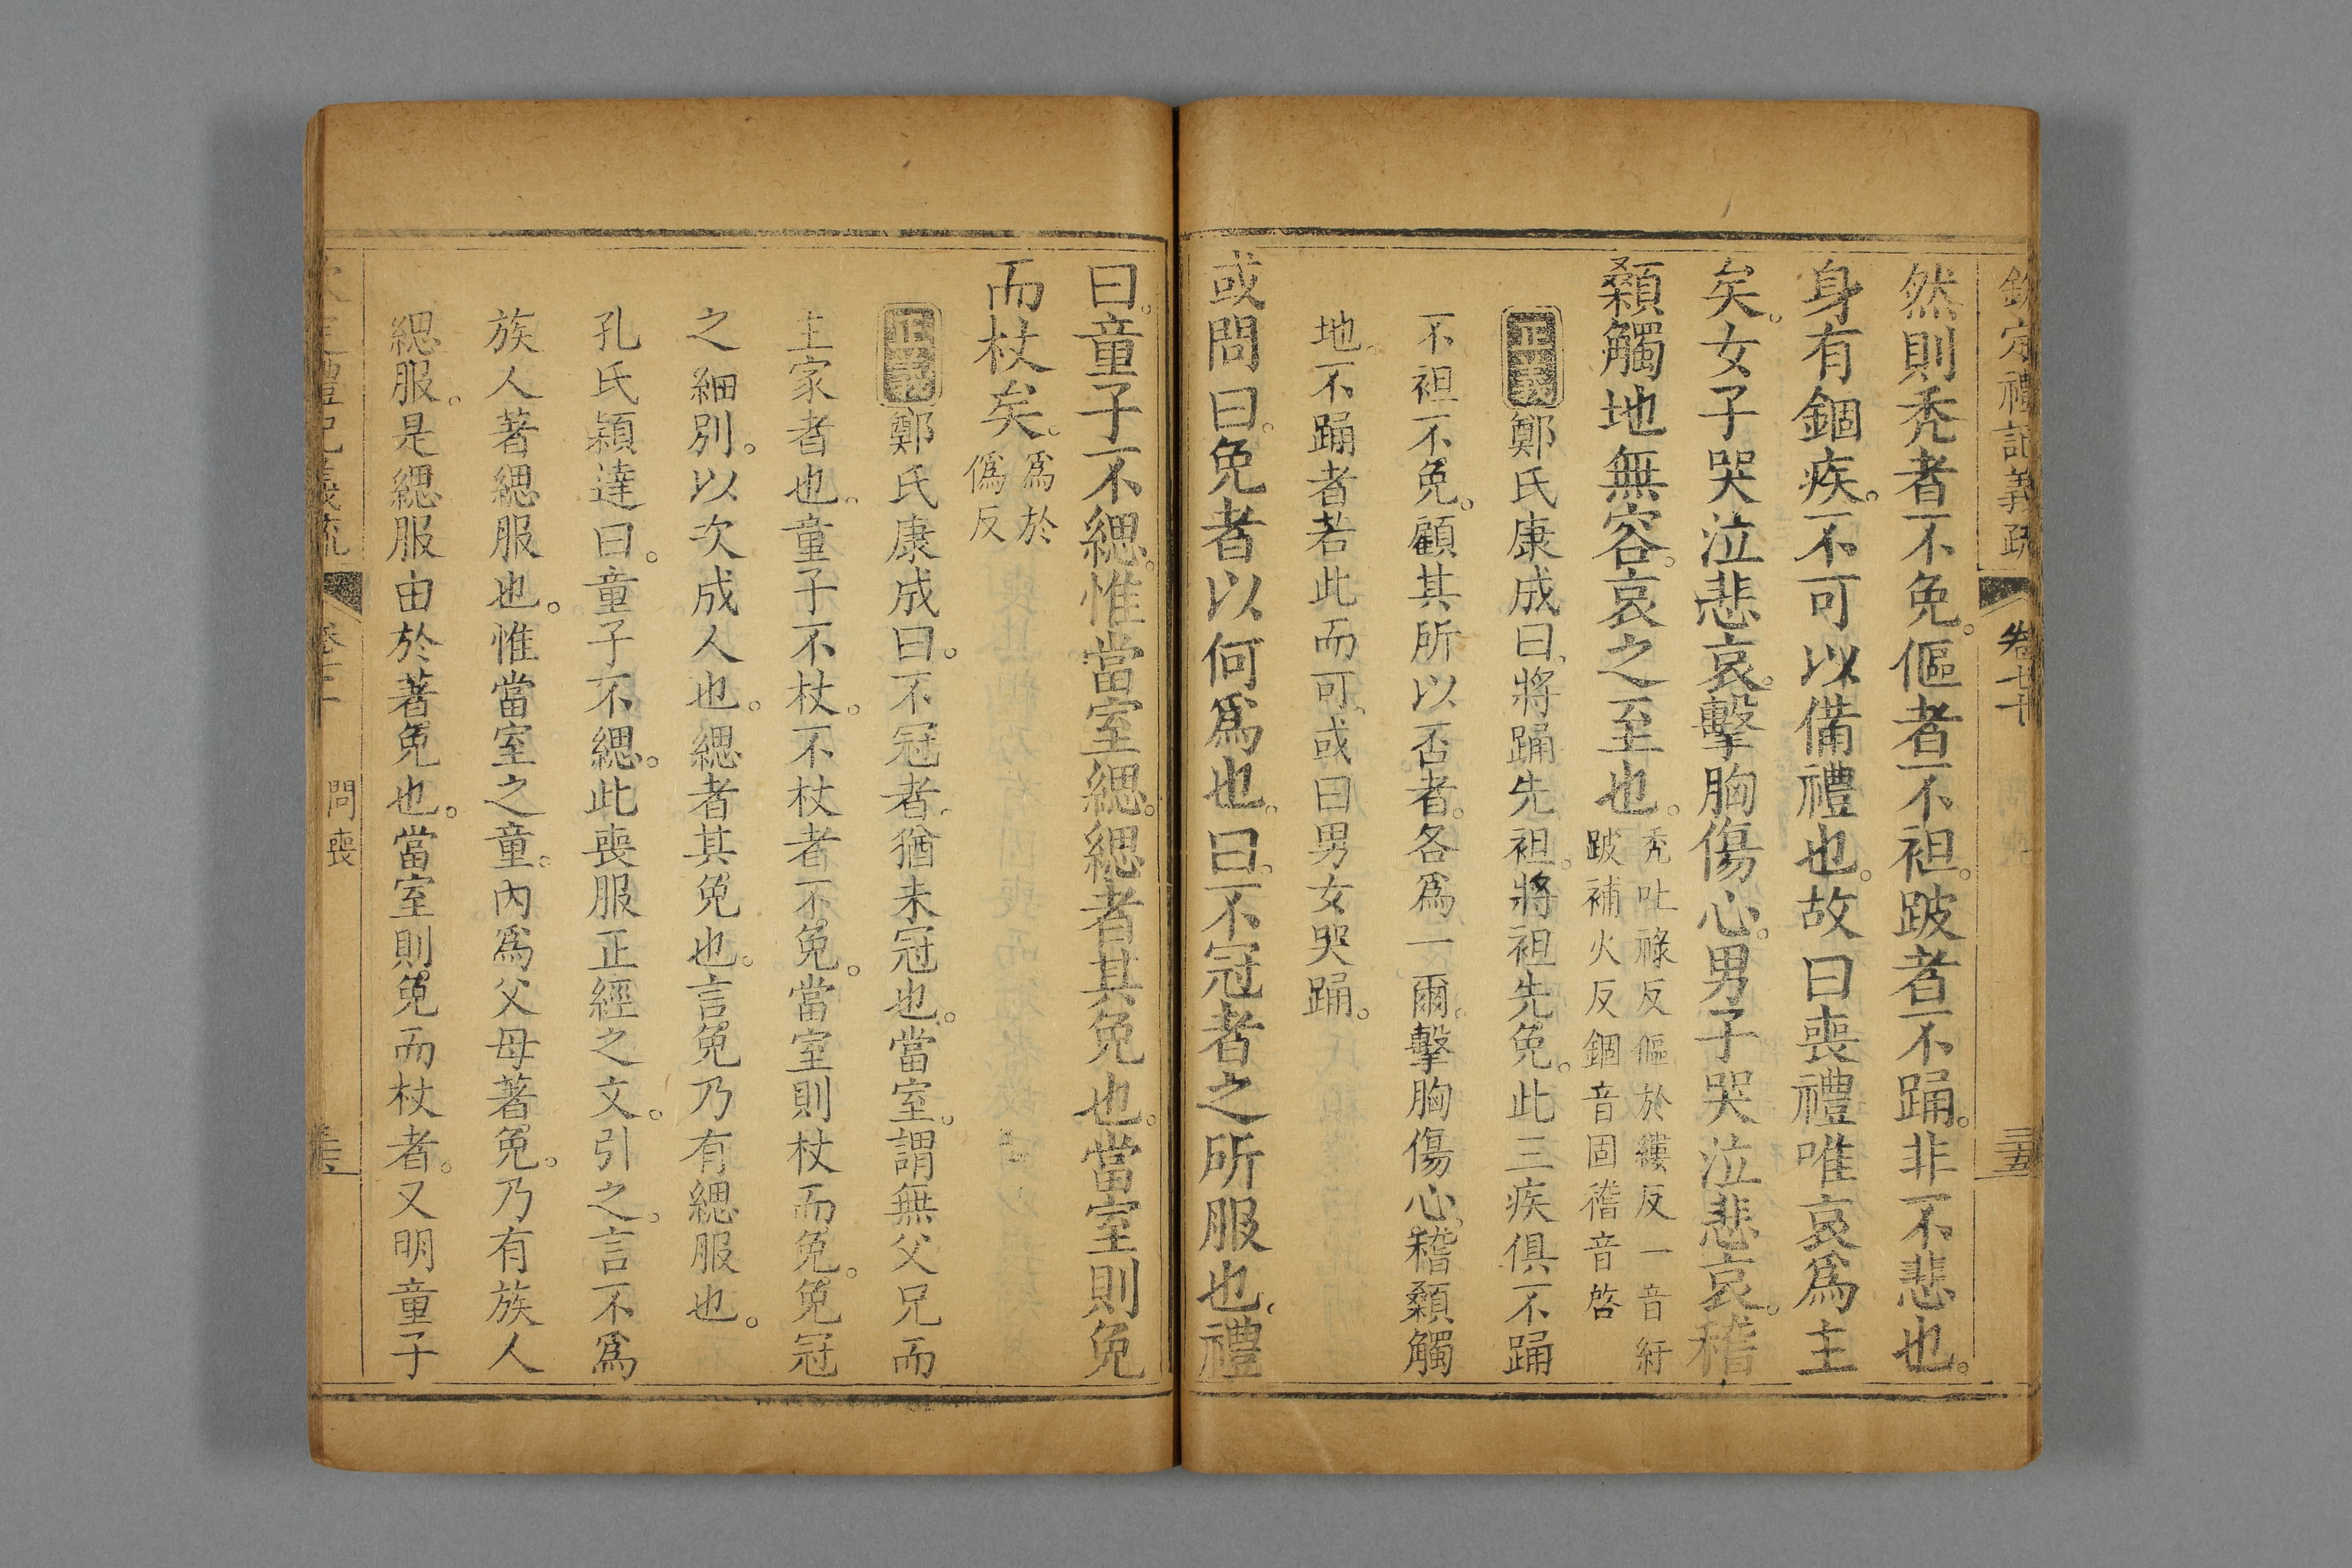 欽定禮記義疏 卷七十 三五
然則禿者不免。傴者不袒。跛者不踊。非不悲也。
身有錮疾。不可以備禮也。故曰喪禮唯哀爲主
矣。女子哭泣悲哀。擊胸傷心。男子哭泣悲哀。稽
顙觸地無容。哀之至也。禿吐祿反傴於縷反一音紆
跛補火反錮音固稽音啓
正義鄭氏康成曰。將踊先袒。將袒先免。此三疾俱不踊
不袒不免。顧其所以否者。各爲一爾。擊胸傷心。稽顙觸
地。不踊者若此而可。或曰男女哭踊。
或問曰。免者以何爲也。曰。不冠者之所服也。禮
曰。童子不緦。惟當室緦。緦者其免也。當室則免
而杖矣。爲於
僞反
正義鄭氏康成曰。不冠者。猶未冠也。當室。謂無父兄而
主家者也。童子不杖。不杖者不免。當室則杖而免。免冠
之細別。以次成人也。緦者其免也。言免乃有緦服也。
孔氏穎達曰。童子不緦。此喪服正經之文。引之。言不爲
族人著緦服也。惟當室之童。內爲父母著免。乃有族人
緦服。是緦服由於著免也。當室則免而杖者。又明童子
問喪